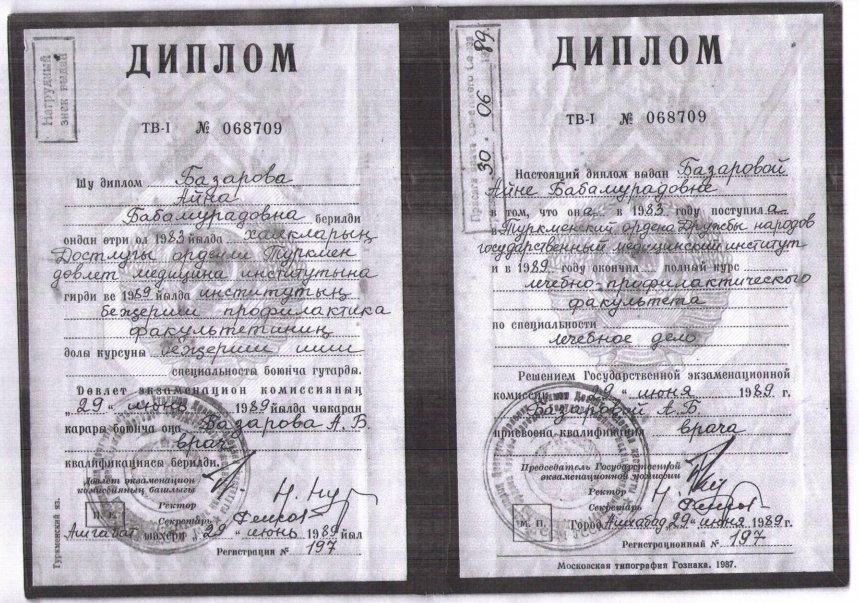 Нагрудный
знак выдан
ДИПЛОМ
ТВ-I № 068709
Шу диплом Базарова
Айна
Бабамурадовна берилди
ондан өтри ол 1983 йылда халкларың
Достлугы орденли Түркмен
дөвлет медицина институтына
гирди ве 1989 йылда институтың
бежериш профилактика
факультетиниң
долы курсуны бежериш иши
специальносты боюнча гутарды.
Дөвлет экзаменацион комиссияның
„29“ июнь 1989 йылда чыкаран
карары боюнча оңа Базарова А. Б.
врач
квалификациясы берилди.
Дөвлет экзаменацион
комиссияның башлыгы
Ректор
Секретарь
Ашгабат шахери „29“ июнь 1989 йыл
Регистрация № 197
Туркменский яз.
30 06 89
ДИПЛОМ
ТВ-I № 068709
Настоящий диплом выдан Базаровой
Айне Бабамурадовне
в том, что она в 1983 году поступила
в Туркменский ордена Дружбы народов
государственный медицинский институт
и в 1989 году окончила полный курс
лечебно-профилактического
факультета
по специальности
лечебное дело
Решением Государственной экзаменационной
комиссии „29“ июня 1989 г.
Базаровой А. Б.
присвоена квалификация врача
Председатель Государственной
экзаменационной комиссии
Ректор
Секретарь
М. П.
Город Ашхабад „29“ июня 1989 г.
Регистрационный № 197
Московская типография Гознака. 1987.